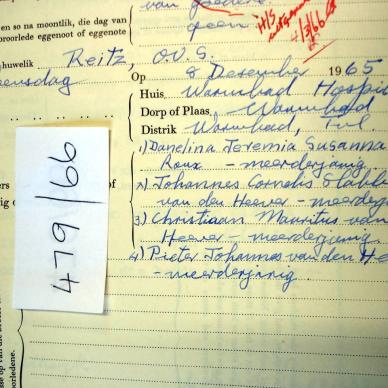 van goedere
geen
H/S
4/3/66
en so na moontlik, die dag van
oorlede eggenoot of eggenote
huwelik Reitz, O.V.S.
ensdag
Op 8 Desember 1965
Huis, Warmbad Hospi
Dorp of Plaas, Warmbad
Distrik Warmbad, Tvl.
1) Danelina Jeremia Susanna
Roux - meerderjarig.
2) Johannes Cornelis
van den Heever - meederj
3) Christiaan Mauritus van
Heever - meerderjarig
4) Pieter Johannes van den He
- meerderjarig
of
479/66
orledene.